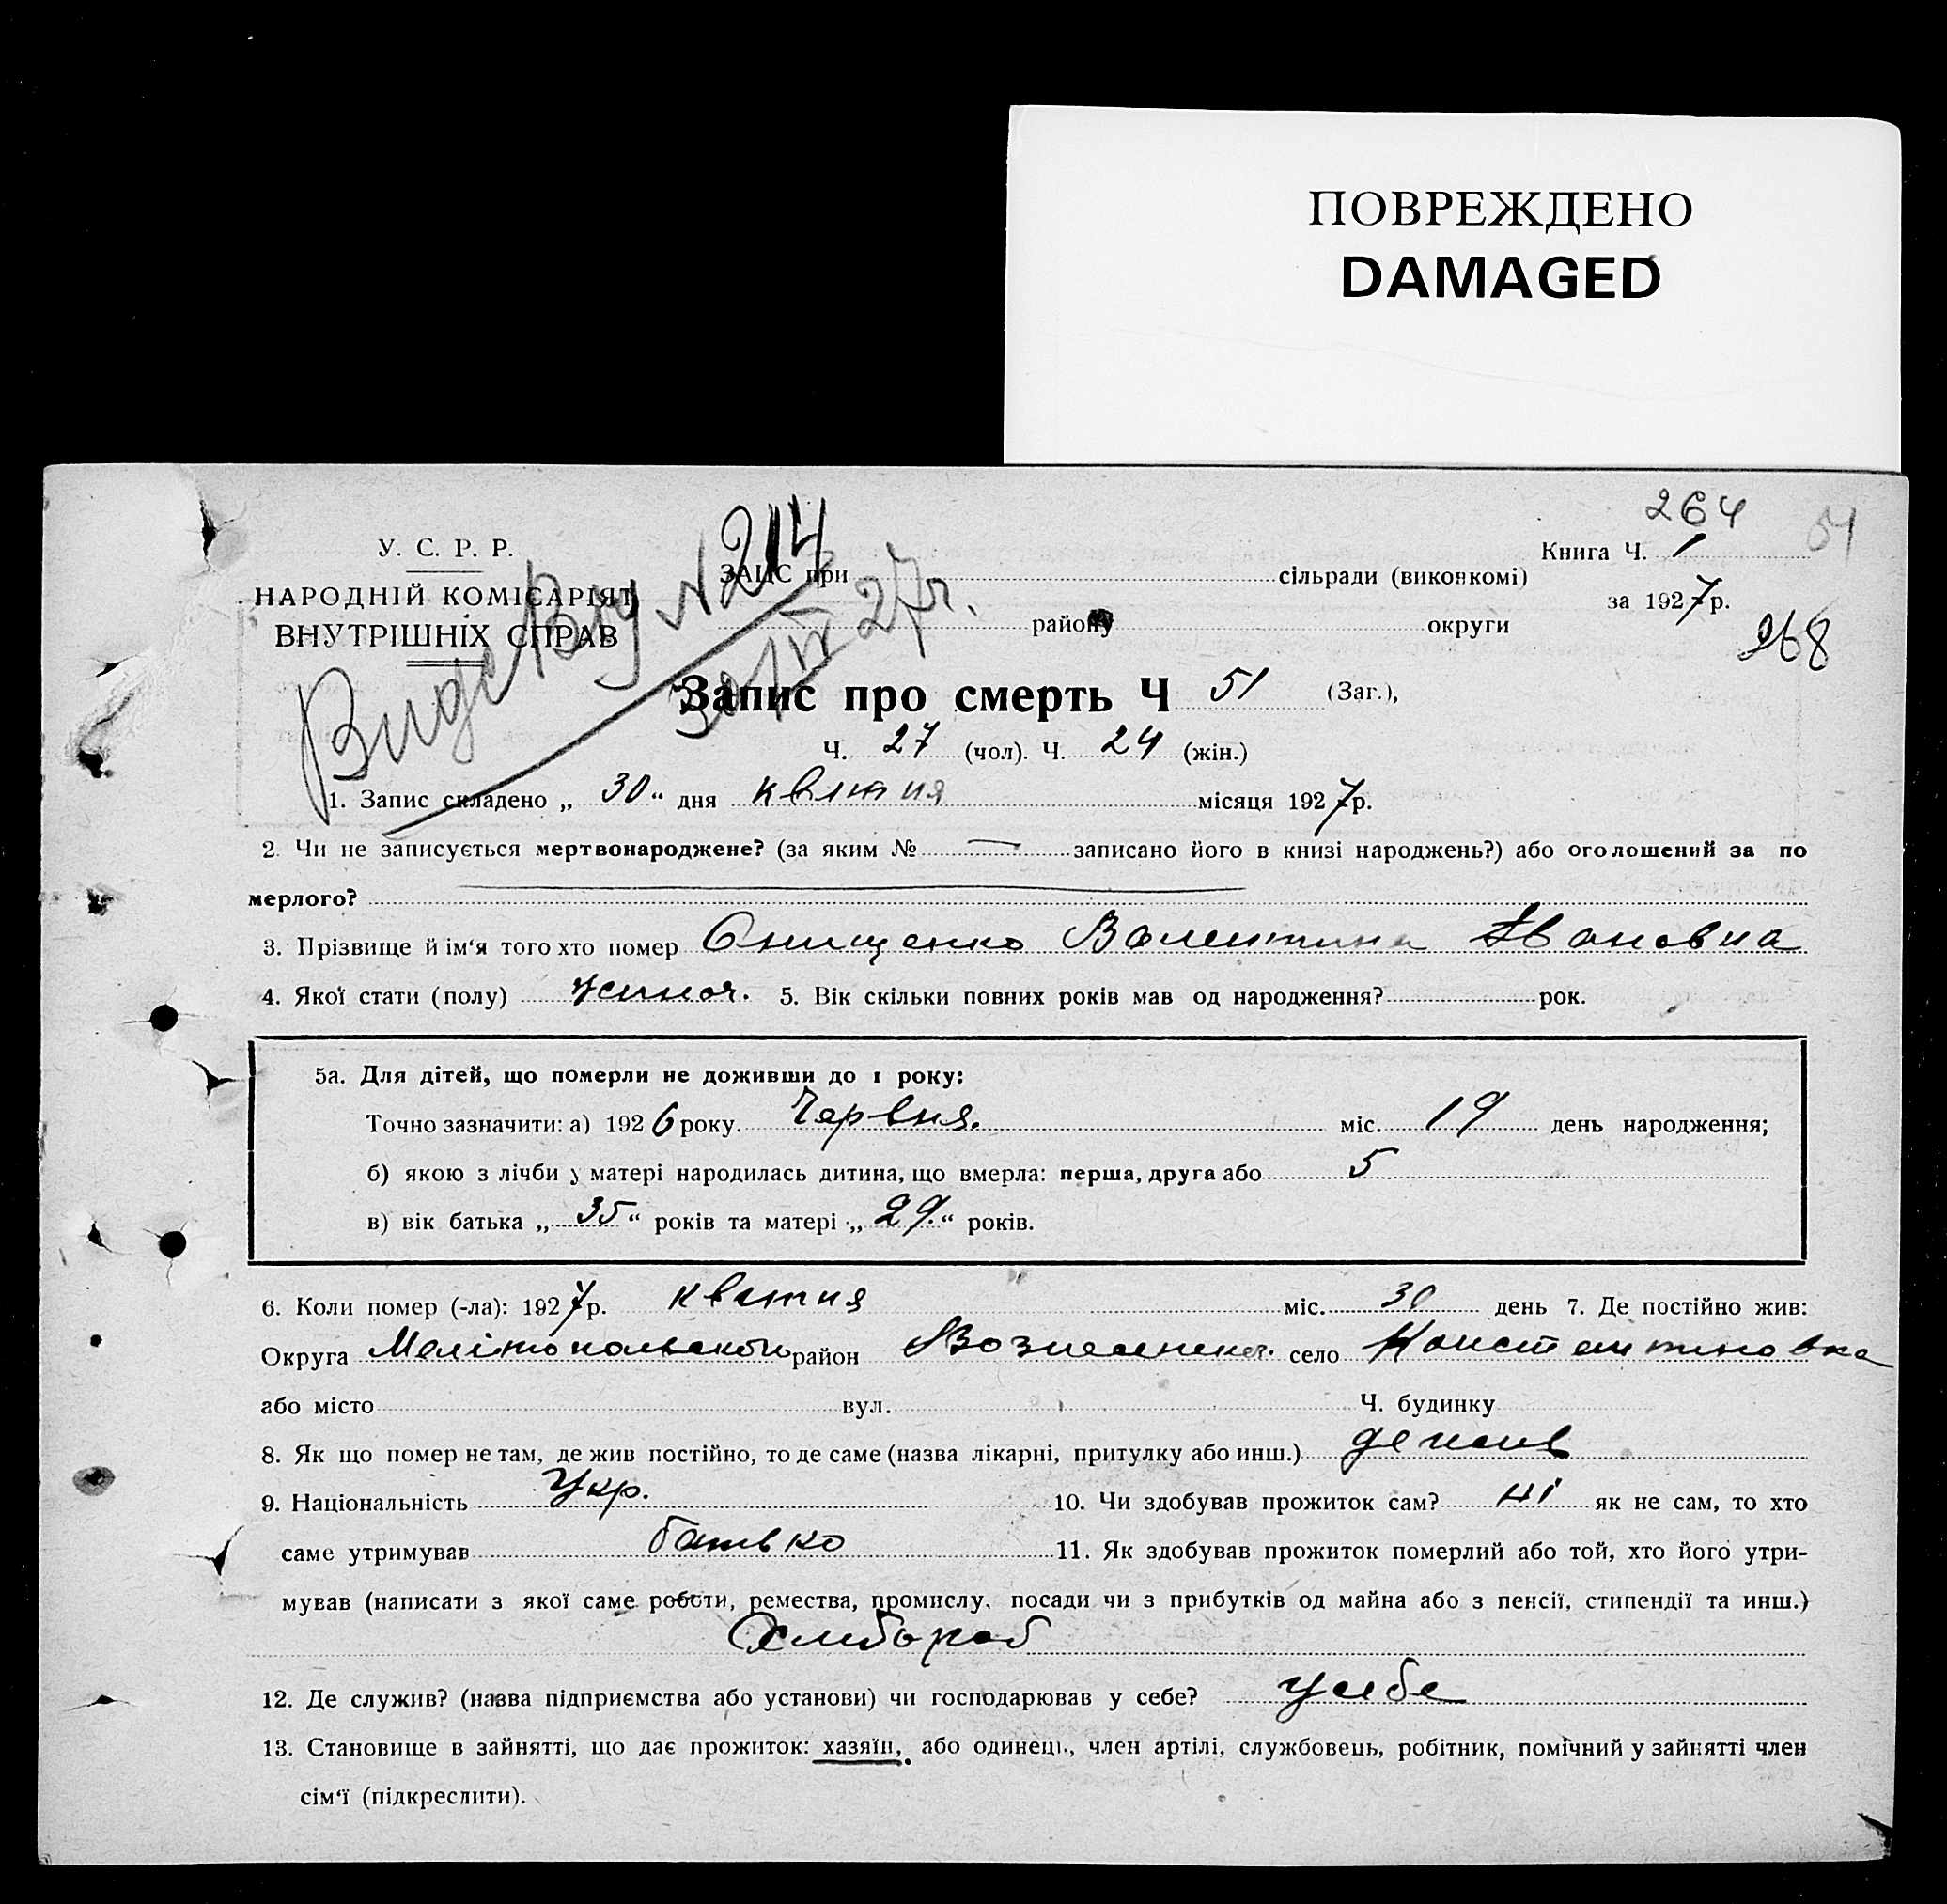 ПОВРЕЖДЕНО
DAMAGED
264
51
У. С. Р. Р.
НАРОДНІЙ КОМІСАРІЯТ
ВНУТРІШНІХ СПРАВ
№ 214
30/IV 27 г.
ЗАЦС при сільради (виконкомі)
району округи
Книга Ч. 1
за 1927 р.
268
Запис про смерть Ч 51 (Заг.),
Ч. 27 (чол). Ч. 24 (жін.)
1. Запис складено „ 30 “ дня квітня місяця 1927 р.
2. Чи не записується мертвонароджене? (за яким № — записано його в книзі народжень?) або оголошений за по
мерлого?
3. Прізвище й ім‘я того хто помер Онищенко Валентина Ивановна
4. Якої стати (полу) жиноч. 5. Вік скільки повних років мав од народження? рок.
5а. Для дітей, що померли не доживши до 1 року:
Точно зазначити: а) 1926 року. Червня. міс. 19 день народження;
б) якою з лічби у матері народилась дитина, що вмерла: перша, друга або 5
в) вік батька „ 35 “ років та матері „ 29. “ років.
6. Коли помер (-ла): 1927 р. квітня міс. 30 день 7. Де постійно жив:
Округа район село Константиновка
або місто вул. Ч. будинку
8. Як що помер не там, де жив постійно, то де саме (назва лікарні, притулку або инш.) де жив
9. Національність Укр. 10. Чи здобував прожиток сам? ні як не сам, то хто
саме утримував батько 11. Як здобував прожиток померлий або той, хто його утри-
мував (написати з якої саме роботи, ремества, промислу, посади чи з прибутків од майна або з пенсії, стипендії та инш.)
Хлибораб
12. Де служив? (назва підприємства або установи) чи господарював у себе? у себе
13. Становище в зайнятті, що дає прожиток: хазяїн, або одинець, член артілі, службовець, робітник, помічний у зайнятті член
сім‘ї (підкреслити).